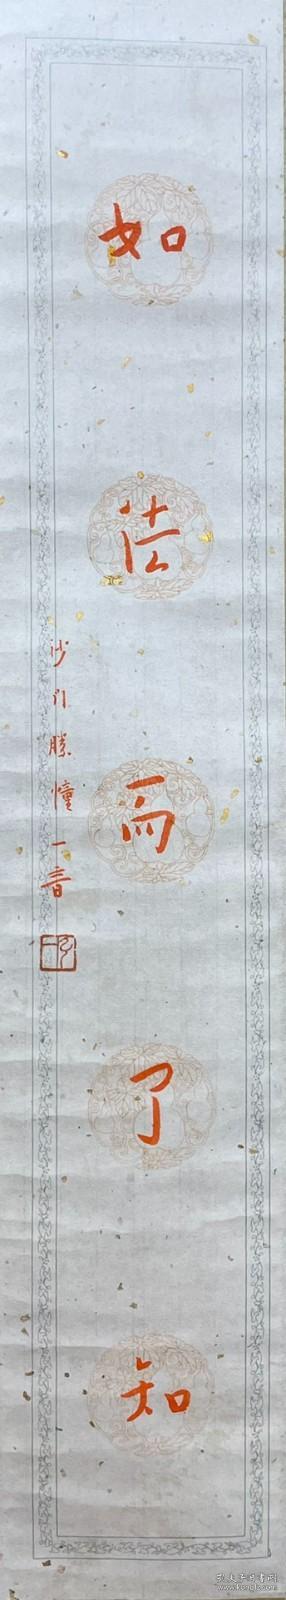 如法而了知
沙门勝幢一音
孔夫子旧书网